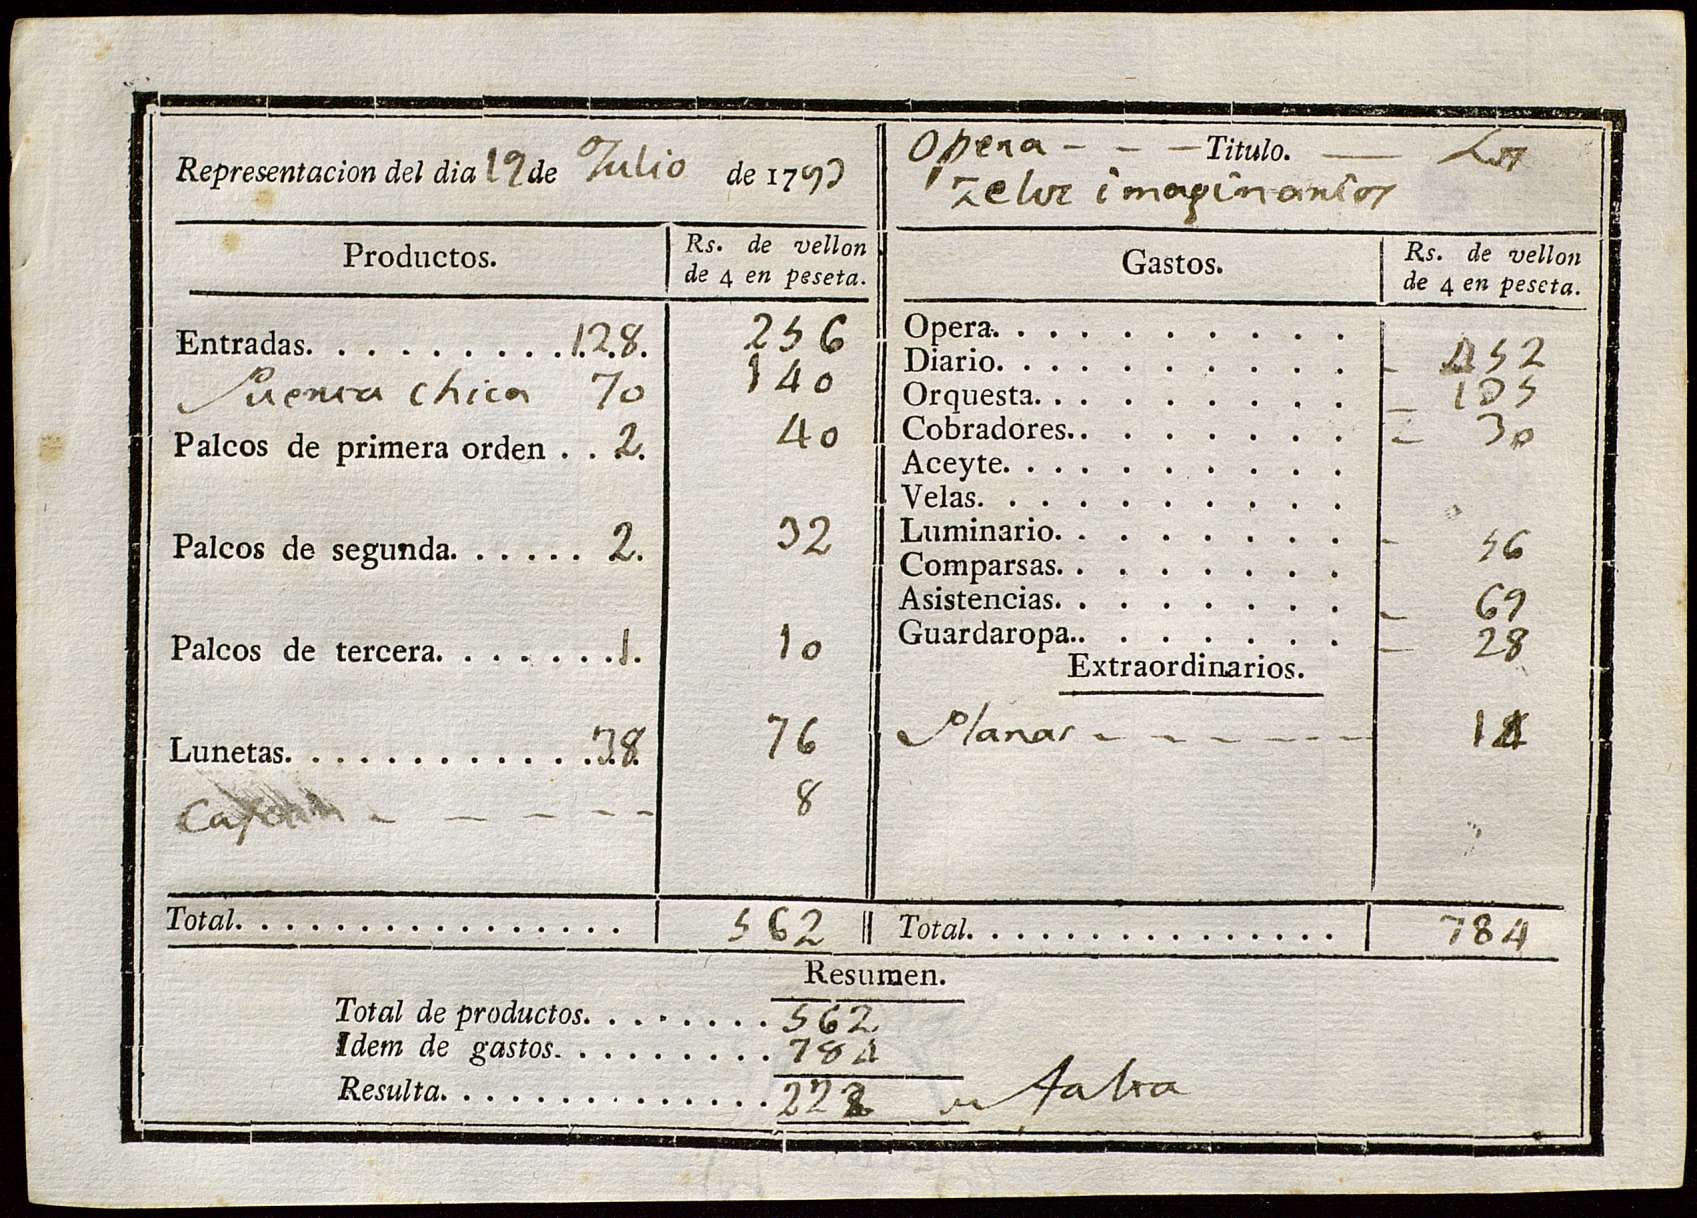 Representacion del dia 19 de Julio de 1793
Productos.
Rs. de vellon
de 4 en peseta.
Entradas. . . . . . . . . . 128. 256
Puerta chica 70 140
Palcos de primera orden . . 2. 40
Palcos de segunda. . . . . . 2. 32
Palcos de tercera. . . . . . . . 1. 10
Lunetas. . . . . . . . . . . . . 38. 76
8
Total. . . . . . . . . . . . . . . . . 562
Opera - - - Titulo. — Los
zelos imaginarios
Gastos.
Rs. de vellon
de 4 en peseta.
Opera. . . . . . . . . . . .
Diario. . . . . . . . . . . . - 452
Orquesta. . . . . . . . . . - 135
Cobradores.. . . . . . . . - 30
Aceyte. . . . . . . . . . .
Velas. . . . . . . . . . . .
Luminario. . . . . . . . . - 56
Comparsas. . . . . . . .
Asistencias. . . . . . . . - 69
Guardaropa.. . . . . . . - 28
Extraordinarios.
Planas - - - - - - - 14
Total. . . . . . . . . . . . . . . . 784
Resumen.
Total de productos. . . . . . . . 562
Idem de gastos. . . . . . . . . 784
Resulta. . . . . . . . . . . . . . 222 Falta